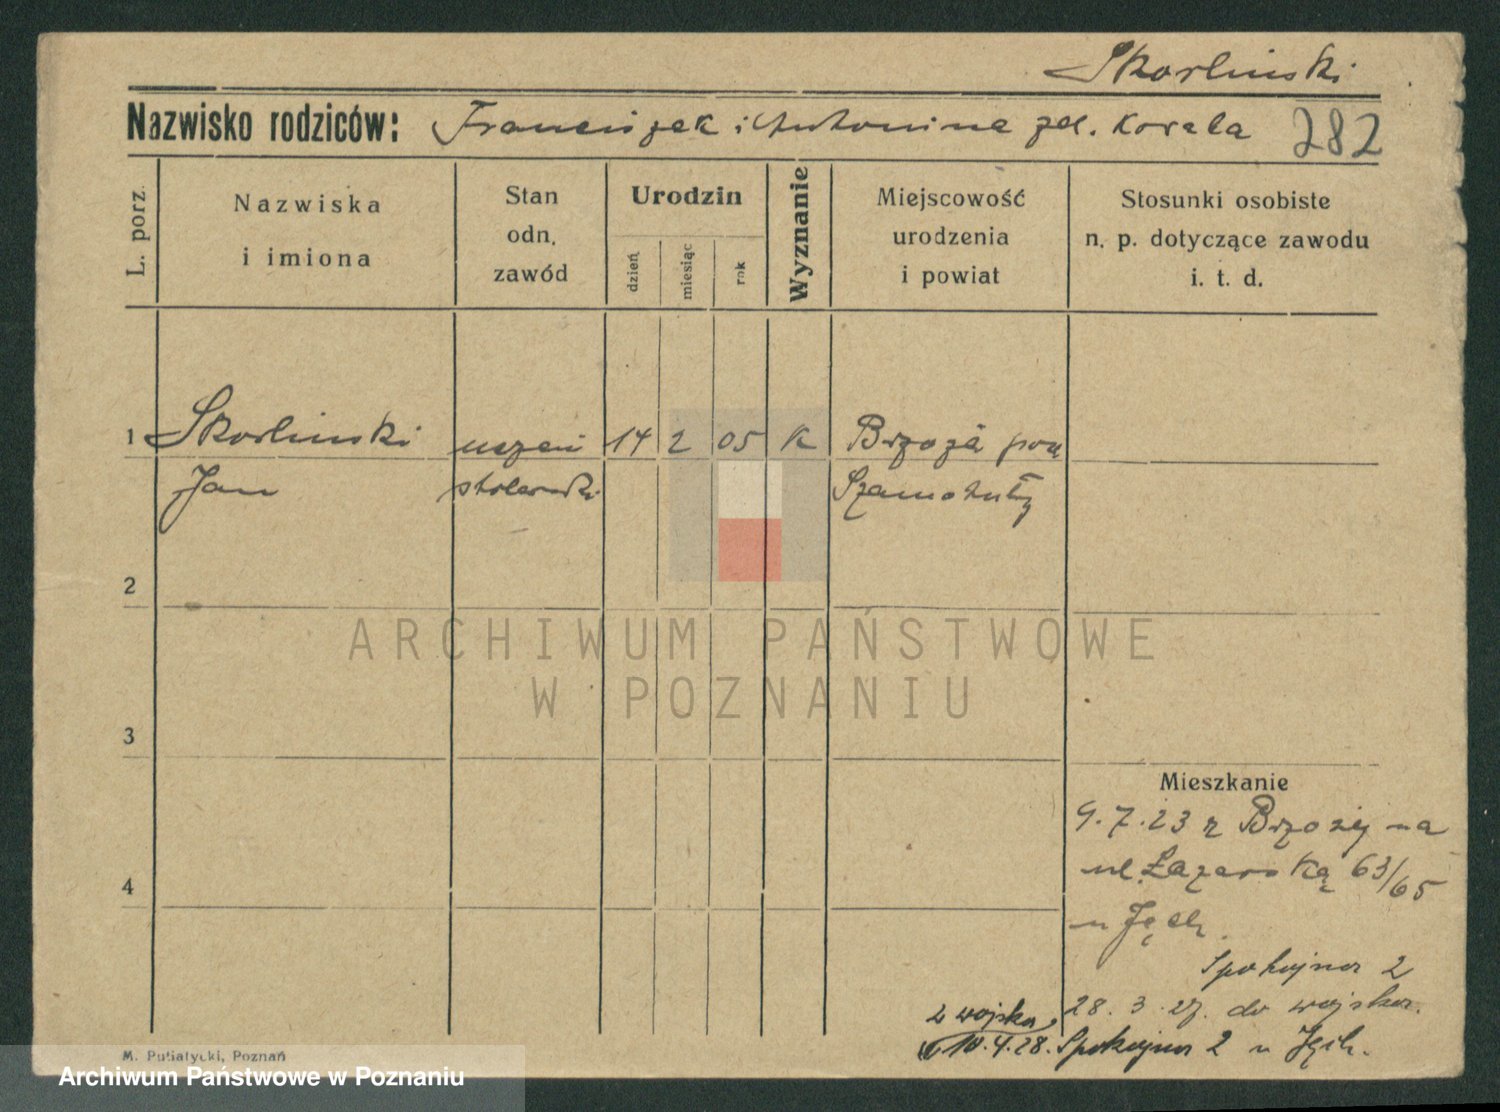 Skorliński
Nazwisko rodziców: Franciszek i Antonina zd. Korala 282
L. porz.
Nazwiska
i imiona
Stan
odn.
zawód
Urodzin
dzień
miesiąc
rok
Wyznanie
Miejscowość
urodzenia
i powiat
Stosunki osobiste
n. p. dotyczące zawodu
i. t. d.
1 Skorliński uczeń 14 2 05 K Brzoza pow
Jan stolarski Szamotuły
2
ARCHIWUM PAŃSTWOWE
W POZNANIU
3
Mieszkanie
9.7.23 z Brzozy na
ul. Łazarską 63/65
4
u
Spokojna 2
28.3.27. do wojska.
z wojska
10.4.28. Spokojna 2 u
M. Putiatycki, Poznań
Archiwum Państwowe w Poznaniu